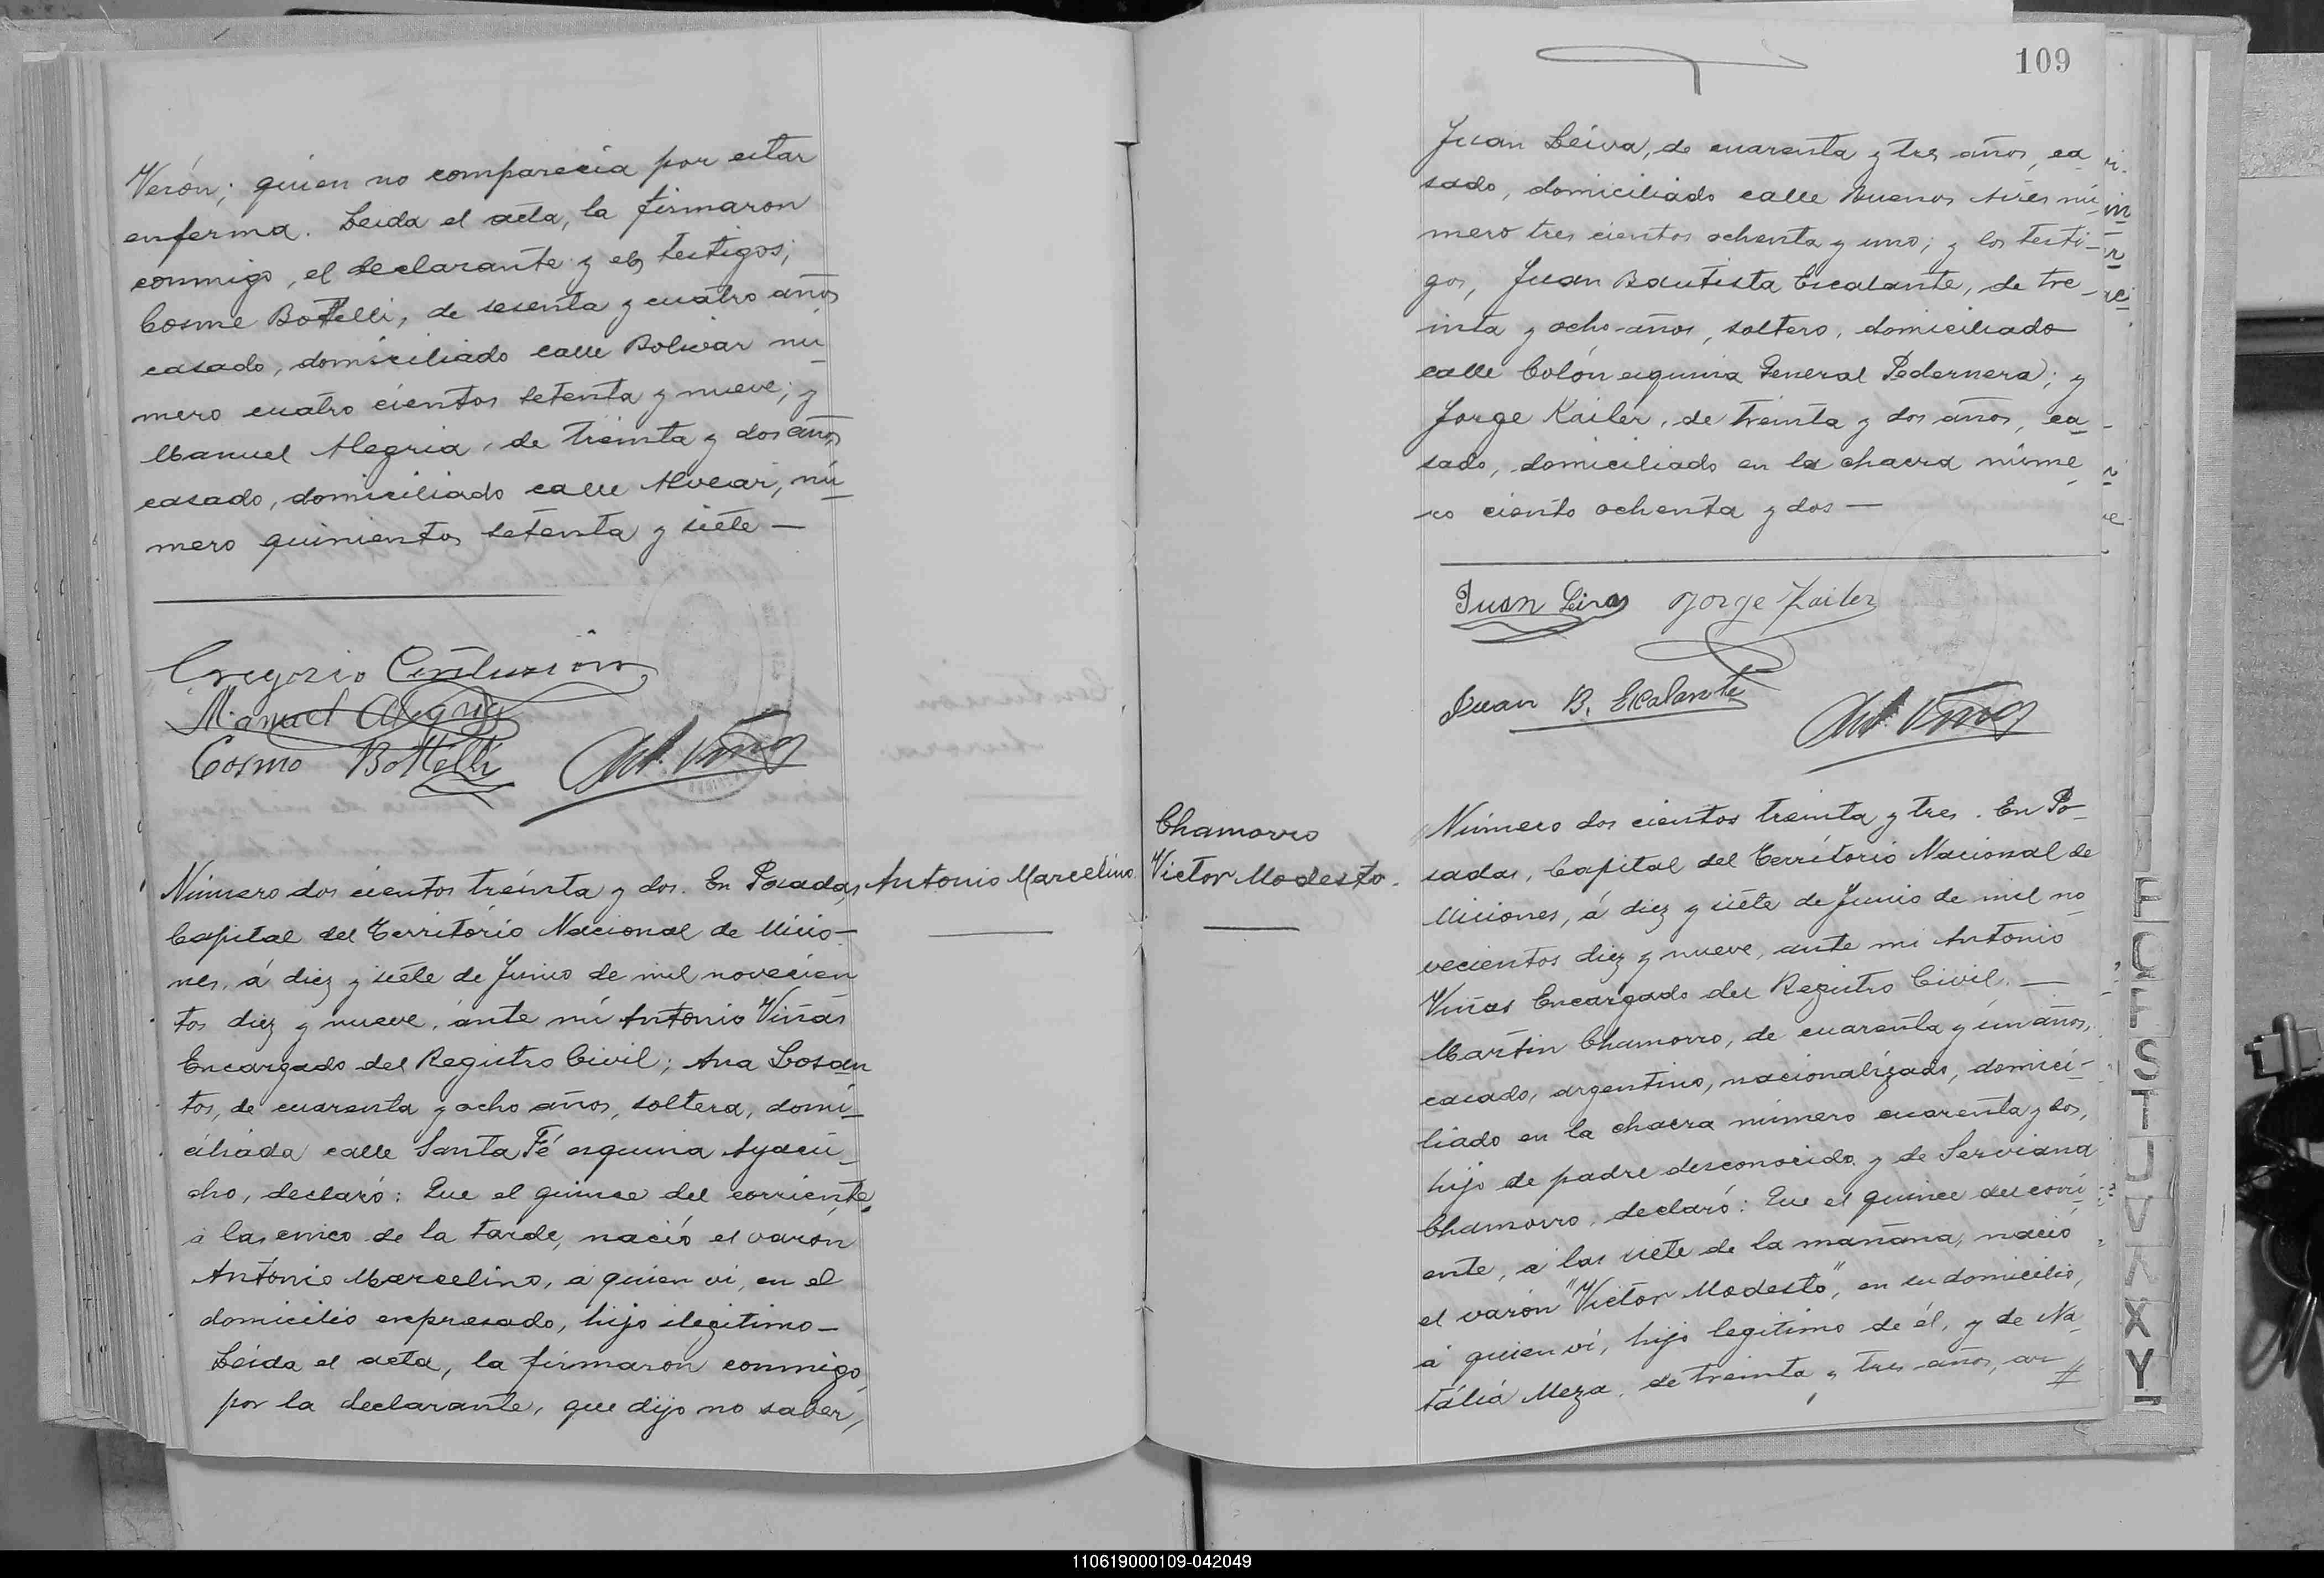 Verón; quien no comparecia por estar
enferma. Leida el acta, la firmaron
conmigo, el declarante y los testigos;
Cosme Bottelli, de sesenta y cuatro años
casado, domiciliado calle Bolivar nú
mero cuatro cientos setenta y nueve; y
Manuel Alegria, de treinta y dos años
casado, domiciliado calle Alvear, nú
mero quinientos setenta y siete —
Gregorio Centurión
Manuel Alegria
Cosmo Bottelli
Ant. Viñas
Número dos cientos treinta y dos. En Posadas
Capital del Território Nacional de Misio-
nes, á diez y siete de Junio de mil novecien
tos diez y nueve, ánte mí Antonio Viñas
Encargado del Registro Civil; Ana Losan
tos, de cuarenta y ocho años, soltera, domi
ciliada calle Santa Fé esquina Ayacu-
cho, declaró: Que el quince del corriente,
á las cinco de la tarde, nació el varon
António Marcelino, á quien vi, en el
domicilio expresado, hijo ilegitimo —
Leida el acta, la firmaron conmigo,
por la declarante, que dijo no saber,
Antonio Marcelino.
109
Juan Leiva, de cuarenta y tres años, ca
sado, domiciliado calle Buenos Aires nú
mero tres cientos ochenta y uno; y los testi-
gos, Juan Bautista Escalante, de tre-
inta y ocho años, soltero, domiciliado
calle Colón esquina General Pedernera; y
Jorge Kailer, de treinta y dos años, ca
sado, domiciliado en la chacra núme
ro ciento ochenta y dos —
Juan Leiva Jorge Kailer
Juan B. Escalante
Ant. Viñas
Chamorro
Victor Modesto.
Número dos cientos treinta y tres. En Po-
sadas, Capital del Território Nacional de
Misiones, á diez y siete de Junio de mil no
vecientos diez y nueve, ante mi Antonio
Viñas Encargado del Registro Civil. —
Martin Chamorro, de cuarenta y un años,
casado, argentino, nacionalizado, domici-
liado en la chacra número cuarenta y dos,
hijo de padre desconocido y de Serviana
Chamorro, declaró: Que el quince del corri
ente, a las siete de la mañana, nació
el varón "Victor Modesto", en su domicilio,
á quien ví, hijo legitimo de él, y de Na
tália Meza, de treinta y tres años, ar
F
Q
F
S
T
U
V
X
Y
110619000109-042049